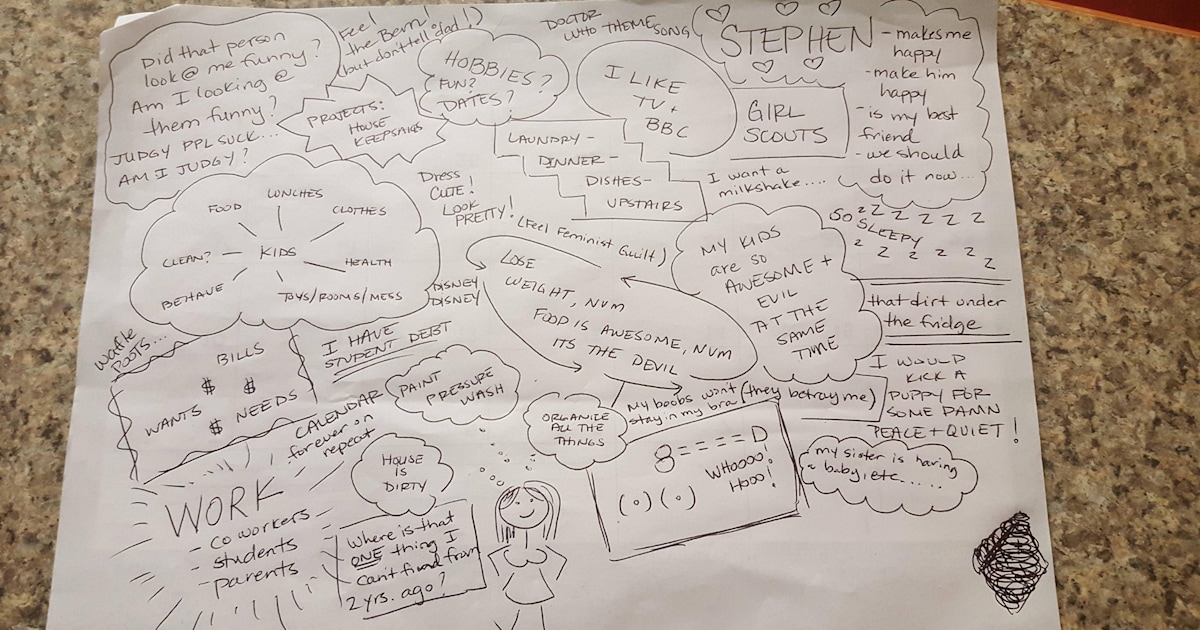 Did that person
look @ me funny?
Am I looking @
them funny?
JUDGY PPL SUCK...
AM I JUDGY?
Feel
the Bern!
(but don't tell dad!)
PROJECTS:
HOUSE
KEEPSAKES
HOBBIES?
FUN?
DATES?
DOCTOR
WHO THEME
SONG
I LIKE
TV +
BBC
STEPHEN
- makes me
happy
- make him
happy
- is my best
friend
- we should
do it now...
GIRL
SCOUTS
LAUNDRY -
DINNER -
DISHES -
UPSTAIRS
I want a
milkshake....
SO
SLEEPY
z z z z z z
z z z z z
LUNCHES
FOOD
CLOTHES
CLEAN?
KIDS
HEALTH
BEHAVE
TOYS/ROOMS/MESS
DRESS
CUTE!
LOOK
PRETTY!
(Feel Feminist Guilt)
DISNEY
DISNEY
LOSE
WEIGHT, NUM
FOOD IS AWESOME, NUM
ITS THE DEVIL
MY KIDS
are so
AWESOME +
EVIL
AT THE
SAME
TIME
that dirt under
the fridge
I WOULD
KICK A
PUPPY FOR
SOME DAMN
PEACE + QUIET!
Waffle
BILLS
$ $
WANTS
$ NEEDS
I HAVE
STUDENT DEBT
CALENDAR
forever on
repeat
PAINT
PRESSURE
WASH
ORGANIZE
ALL THE
THINGS
My boobs won't
stay in my bra (they betray me)
8====D
WHOOOO!
HOOO!
(o)(o)
my sister is having
a baby, etc......
HOUSE
IS
DIRTY
WORK
- coworkers
- students
- parents
Where is that
ONE thing I
can't find from
2 yrs. ago?